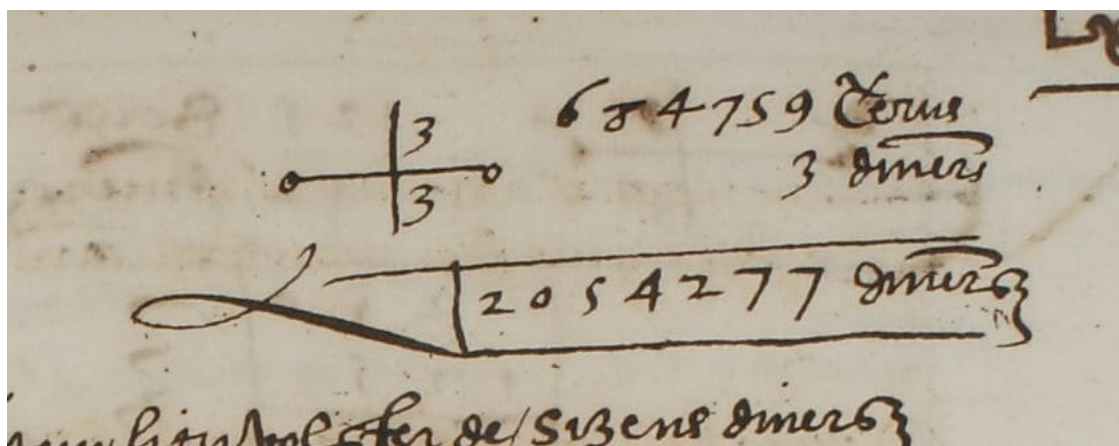 3 684759 terns
o o 3 diners
3
2054277 diners
vols fer de sizens diners